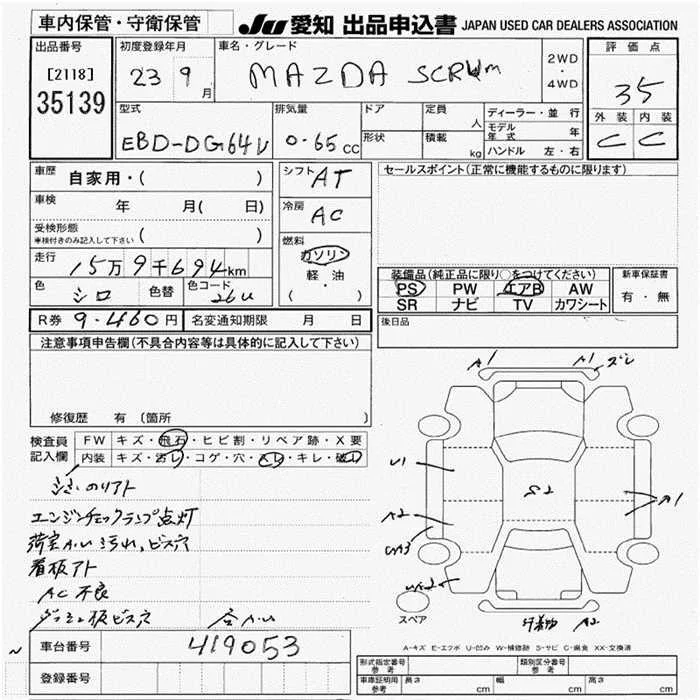 車内保管・守衛保管
JU 愛知 出品申込書 JAPAN USED CAR DEALERS ASSOCIATION
出品番号
[2118]
35139
初度登録年月
23 9 月
車名・グレード
MAZDA SCRUM
2WD
・
4WD
評価点
35
外装 内装
C C
型式
EBD-DG64V
排気量
0.65 cc
ドア
形状
定員
人
積載
kg
ディーラー・並行
モデル年式 年
ハンドル 左・右
車歴
自家用・( )
車検 年 月( 日)
受検形態
車検付きのみ記入して下さい ( )
走行
15万9千694km
色 シロ 色替 色コード 26U
シフト AT
冷房 AC
燃料
ガソリン
軽・油
( ・ )
セールスポイント(正常に機能するものに限ります)
装備品(純正品に限り○をつけてください)
PS PW エアB AW
SR ナビ TV カワシート
新車保証書
有・無
後日品
R券 9.460円 名変通知期限 月 日
注意事項申告欄(不具合内容等は具体的に記入して下さい)
修復歴 有(箇所 )
検査員記入欄
FW キズ・飛石・ヒビ割・リペア跡・X要
内装 キズ・汚レ・コゲ・穴・スレ・キレ・破レ
エンジンチェックランプ点灯
荷室AW汚れ、ビス穴
看板アト
AC不良
ダッシュ板ビス穴
A1
A1 ズレ
U1
S2
A1
A2
スペア
A2
A-キズ E-エクボ U-凹み W-補修跡 S-サビ C-腐食 XX-交換済
車台番号 419053
登録番号
形式指定番号 参考
類別区分番号 参考
車庫証明用 参考 長さ cm 幅 cm 高さ cm